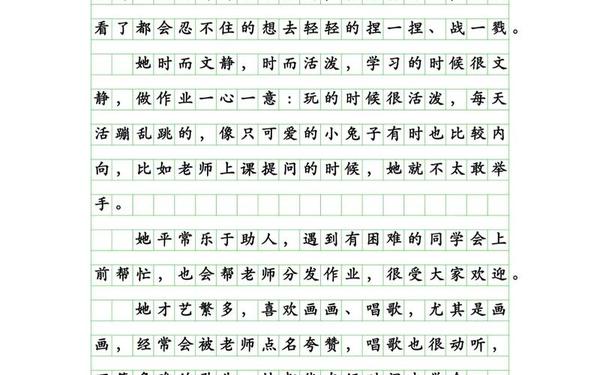 看了都会忍不住的想去轻轻的捏一捏、战一戮。
她时而文静，时而活泼，学习的时候很文
静，做作业一心一意：玩的时候很活泼，每天
活蹦乱跳的，像只可爱的小兔子有时也比较内
向，比如老师上课提问的时候，她就不太敢举
手。
她平常乐于助人，遇到有困难的同学会上
前帮忙，也会帮老师分发作业，很受大家欢迎。
她才艺繁多，喜欢画画、唱歌，尤其是画
画，经常会被老师点名夸赞，唱歌也很动听，